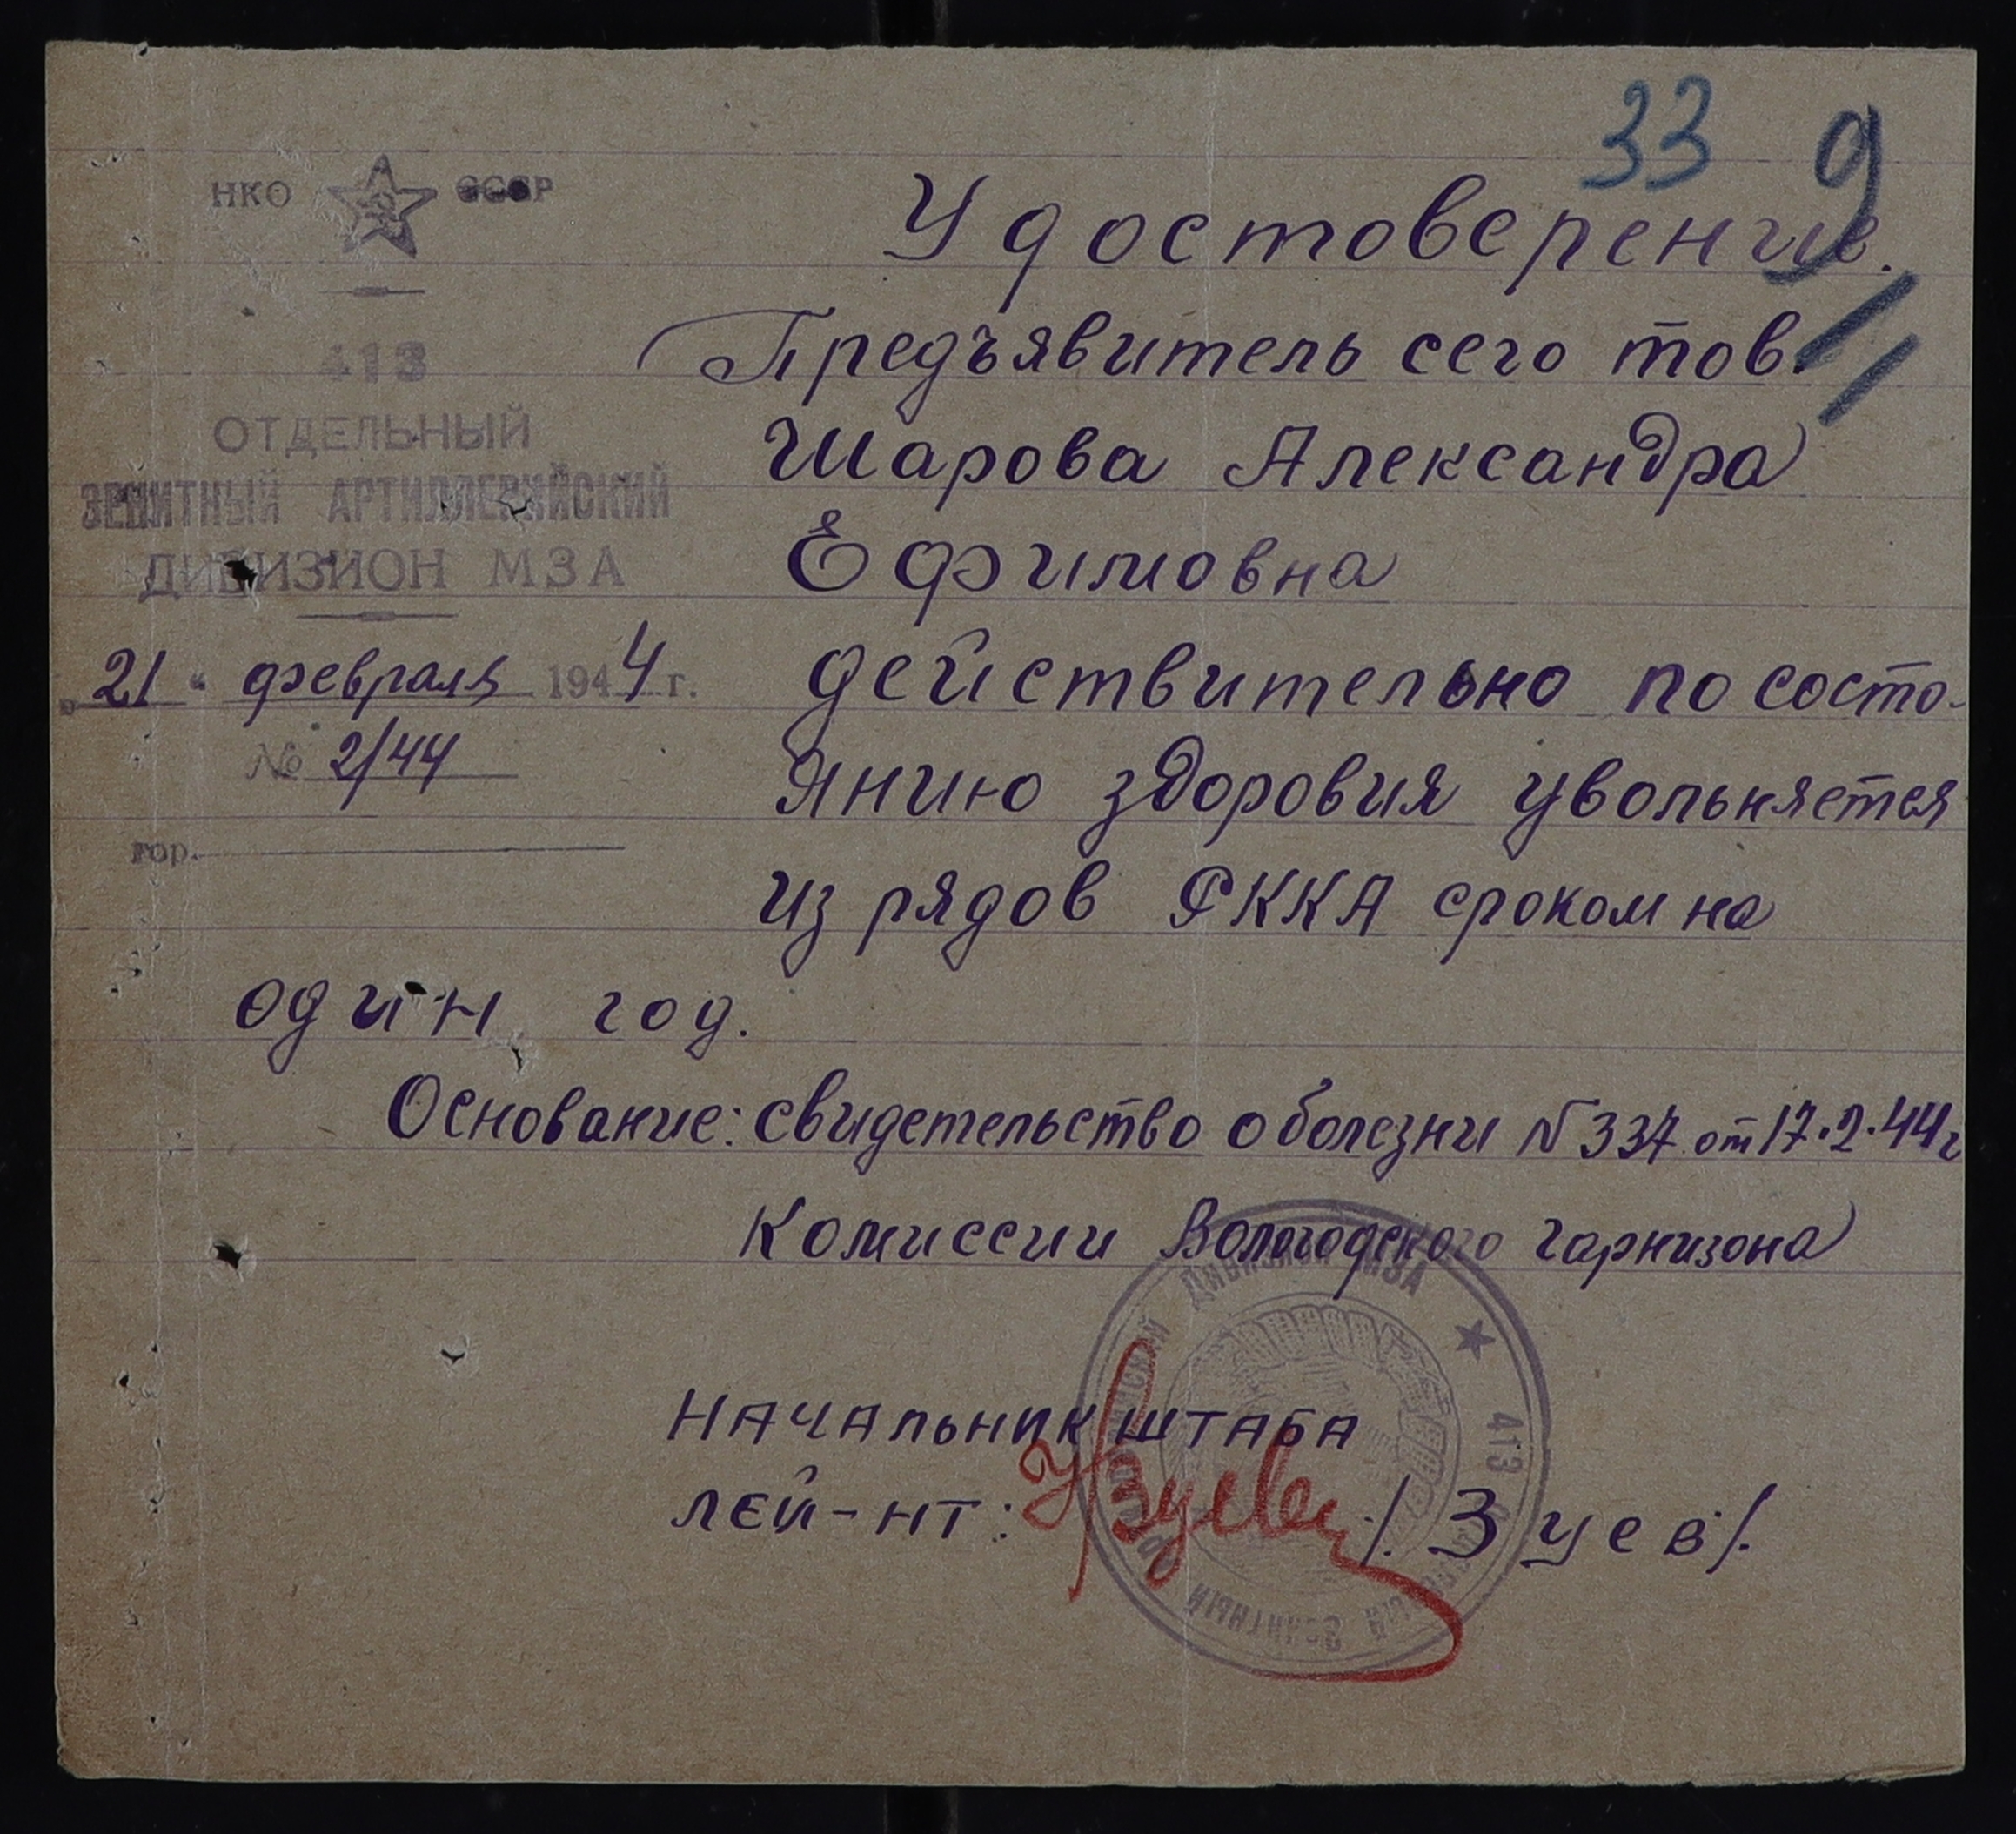 33 9
НКО СССР
413
ОТДЕЛЬНЫЙ
ЗЕНИТНЫЙ АРТИЛЛЕРИЙСКИЙ
ДИВИЗИОН МЗА
„21" февраля 1944 г.
№ 2/44
гор.
Удостоверение.
Предъявитель сего тов.
Шарова Александра
Ефимовна
действительно по состо-
янию здоровия увольняется
из рядов РККА сроком на
один год.
Основание: свидетельство о болезни N 337 от 17.2.44г
Комиссии Вологодского гарнизона
НАЧАЛЬНИК ШТАБА
ЛЕЙ-НТ: Зуев /Зуев/.
413 ЗЕНИТНЫЙ ДИВИЗИОН МЗА